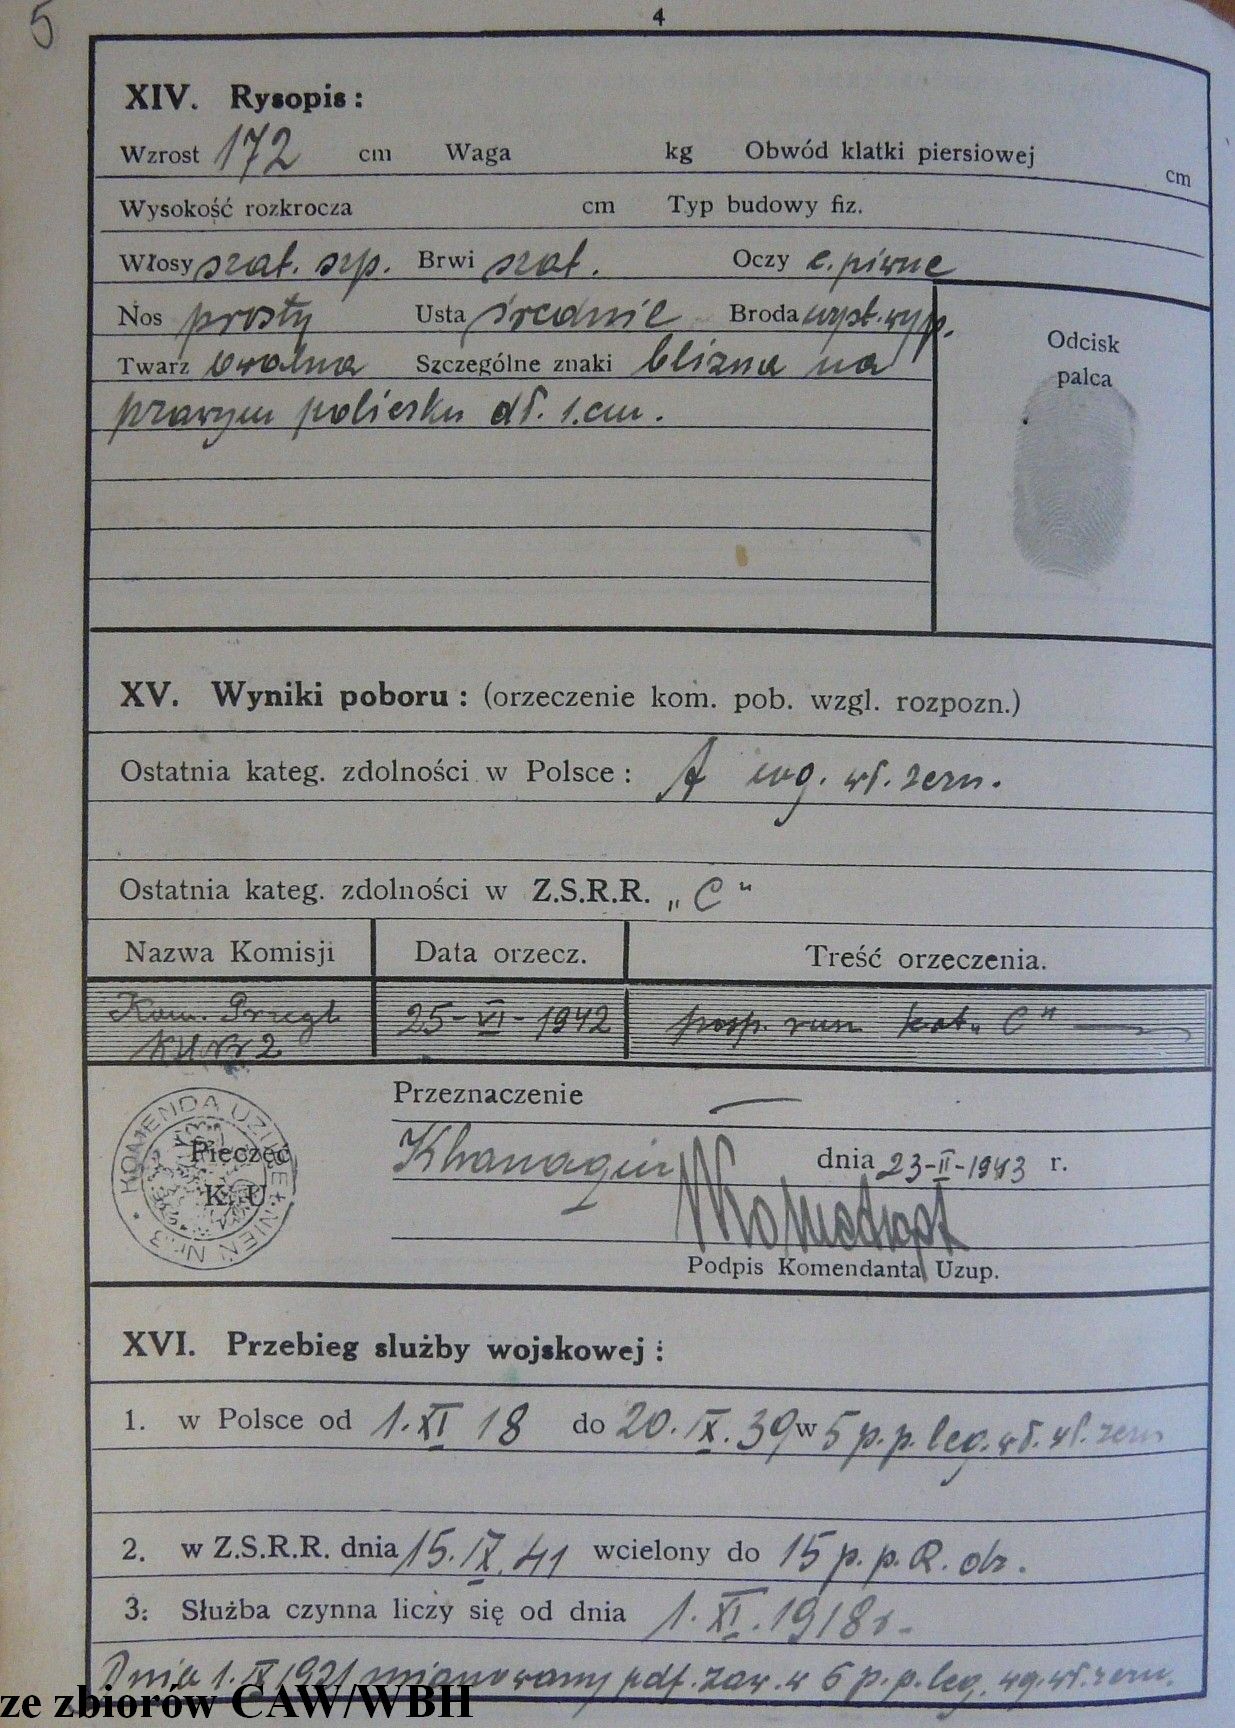 5
4
XIV. Rysopis:
Wzrost 172 cm Waga kg Obwód klatki piersiowej cm
Wysokość rozkrocza cm Typ budowy fiz.
Włosy szat. szp. Brwi szat. Oczy c. piwne
Nos prosty Usta średnie Broda wyp.
Twarz owalna Szczególne znaki blizna na
prawym policzku dł. 1.cm.
Odcisk
palca
XV. Wyniki poboru: (orzeczenie kom. pob. wzgl. rozpozn.)
Ostatnia kateg. zdolności w Polsce: A wg. wł. zezn.
Ostatnia kateg. zdolności w Z.S.R.R. „C"
Nazwa Komisji Data orzecz. Treść orzeczenia.
Kom. Przegl. 25-VI-1942 posp. rusz kat. „C"
KU Nr 2
Przeznaczenie —
KOMENDA UZUPEŁNIEŃ NR. 3
Pieczęć
K. U.
Khanaqin dnia 23-II-1943 r.
Podpis Komendanta Uzup.
XVI. Przebieg służby wojskowej:
1. w Polsce od 1.XI 18 do 20.IX.39 w 5 p.p. leg. wł. zezn
2. w Z.S.R.R. dnia 15.IX.41 wcielony do 15 p.p.
3: Służba czynna liczy się od dnia 1.XI.1918 r.
Dnia 1.IX 1921 mianowany pdf. zaw. w 6 p.p. leg. wg. wł. zezn.
ze zbiorów CAW/WBH